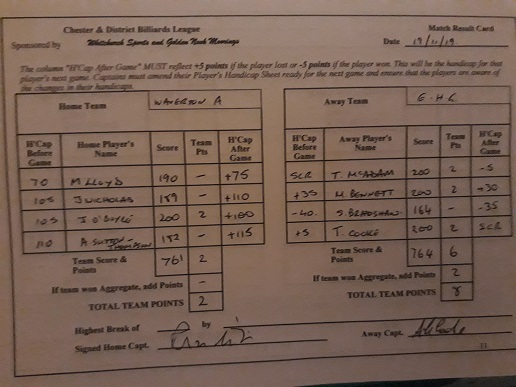 Chester & District Billiards League
Match Result Card
Sponsored by Whitchurch Sports and Golden Nook Moorings
Date 19/11/19
The column "H'Cap After Game" MUST reflect +5 points if the player lost or -5 points if the player won. This will be the handicap for that
player's next game. Captains must amend their Player's Handicap Sheet ready for the next game and ensure that the players are aware of
the changes in their handicaps.
Home Team WAVERTON A
H'Cap Before Game Home Player's Name Score Team Pts H'Cap After Game
70 M LLOYD 190 - +75
105 J NICHOLAS 189 - +110
105 I O'BOYLE 200 2 +100
110 A SUTTON-THOMPSON 182 - +115
Team Score & Points 761 2
If team won Aggregate, add Points -
TOTAL TEAM POINTS 2
Away Team E.H.C
H'Cap Before Game Away Player's Name Score Team Pts H'Cap After Game
SCR T. McADAM 200 2 -5
+35 M. BENNETT 200 2 +30
-40 S. BRADSHAW 164 - -35
+5 T. COOKE 200 2 SCR
Team Score & Points 764 6
If team won Aggregate, add Points 2
TOTAL TEAM POINTS 8
Highest Break of by
Signed Home Capt.
Away Capt.
11